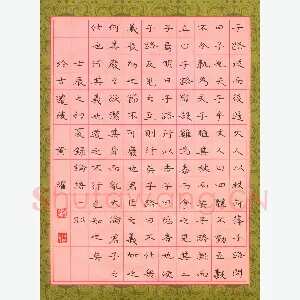 子路從而後遇丈人以杖荷蓧子路問
曰子見夫子乎丈人曰四體不勤五穀
不分孰為夫子植其杖而芸子路拱而
立止子路宿殺雞為黍而食之見其二
子焉明日子路行以告子曰隱者也使
子路反見之至則行矣子路曰不仕無
義長幼之節不可廢也君臣之義如之
何其廢之欲潔其身而亂大倫君子之
仕也行其義也道之不行已知之矣
辰夏錄論語